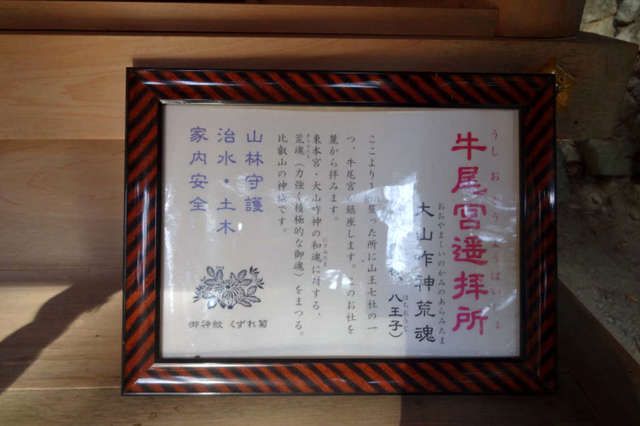 牛尾宮遥拝所
うしおぐうようはいしょ
大山咋神荒魂
おおやまくいのかみのあらみたま
八王子）
はちおうじ
ここより 登った所に山王七社の一
つ、牛尾宮 鎮座します。 のお社を
麓から拝みます。
東本宮・大山咋神の和魂に対する、
にぎみたま
荒魂（力強く積極的な御魂）をまつる。
比叡山の神様です。
山林守護
治水・土木
家内安全
御神紋 くずれ菊